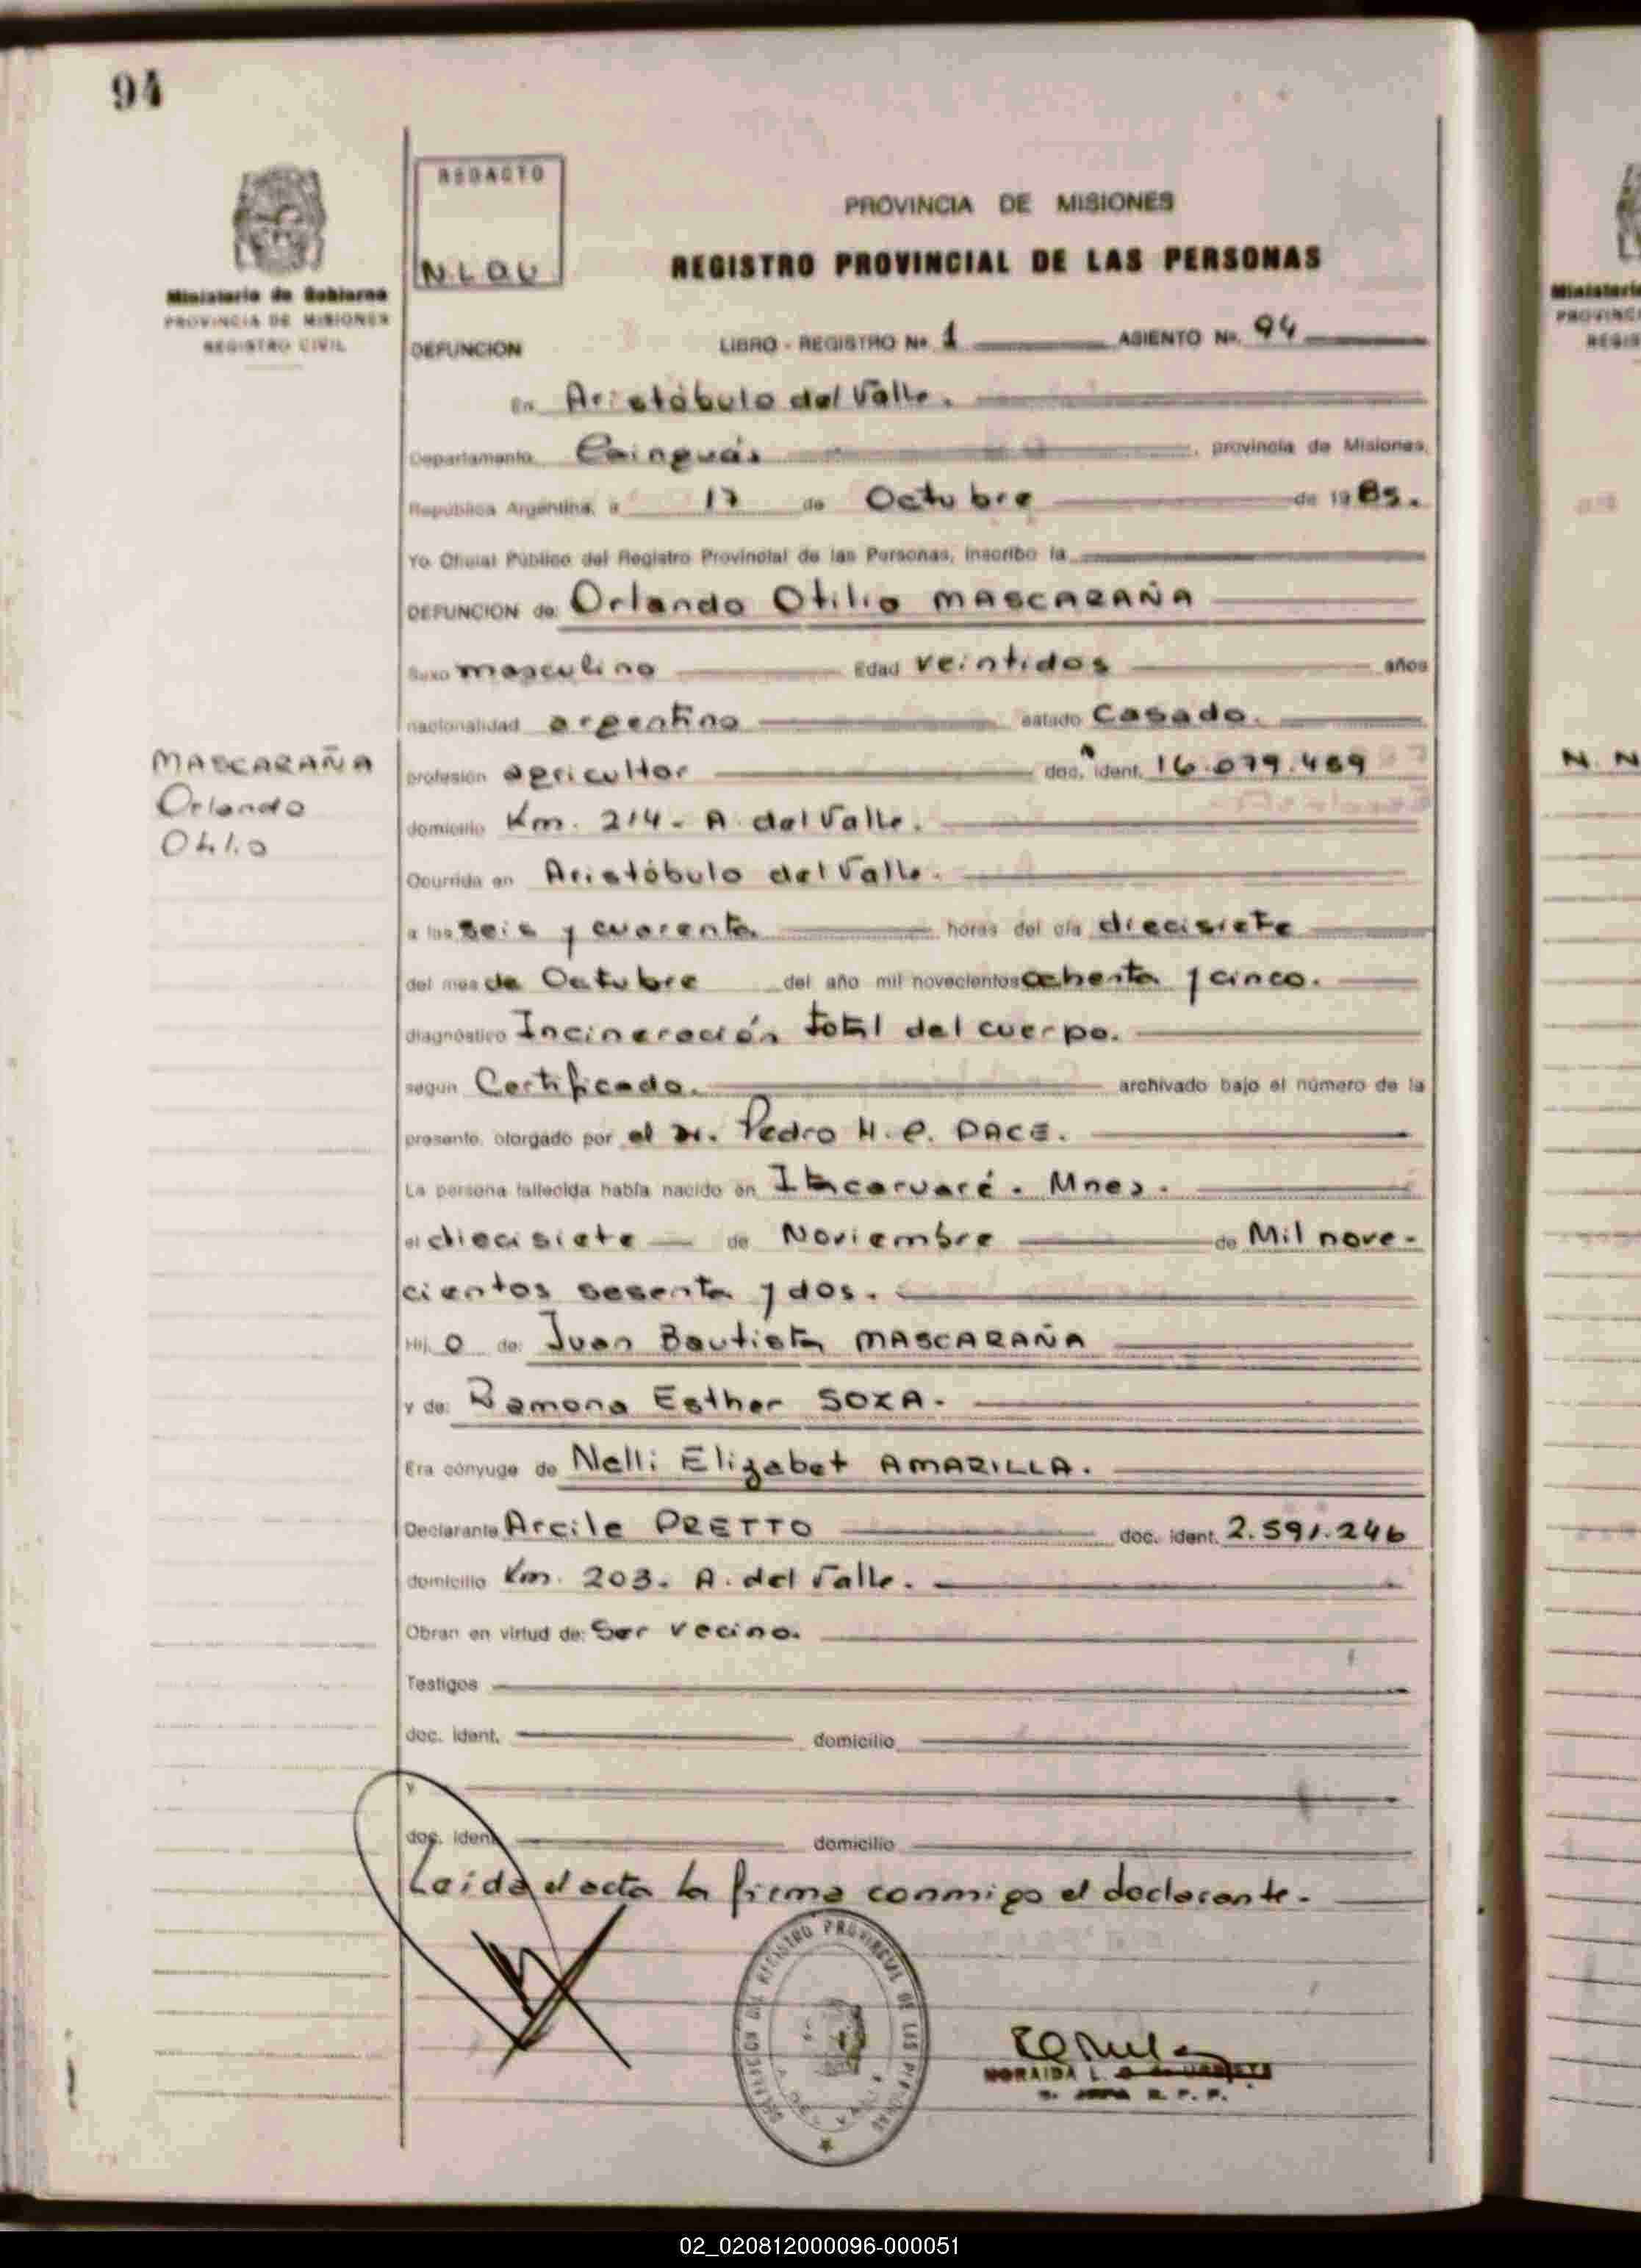 94
REDACTO
N.L.O.U
PROVINCIA DE MISIONES
REGISTRO PROVINCIAL DE LAS PERSONAS
Ministerio de Gobierno
PROVINCIA DE MISIONES
REGISTRO CIVIL
DEFUNCION LIBRO - REGISTRO Nº 1 ASIENTO Nº. 94
En Aristóbulo del Valle.
Departamento Cainguás, provincia de Misiones,
República Argentina, a 17 de Octubre de 1985.
Yo Oficial Público del Registro Provincial de las Personas, inscribo la
DEFUNCION de: Orlando Otilio MASCARAÑA
Sexo masculino Edad veintidos años
nacionalidad argentino estado Casado.
MASCARAÑA
Orlando
Otilio
profesión agricultor doc. ident. 16.079.489
domicilio Km. 214 - A. del Valle.
Ocurrida en Aristóbulo del Valle.
a las seis y cuarenta horas del día diecisiete
del mes de Octubre del año mil novecientos ochenta y cinco.
diagnóstico Incineración total del cuerpo.
según Certificado. archivado bajo el número de la
presente, otorgado por el Dr. Pedro H. C. PACE.
La persona fallecida había nacido en Itacaruaré - Mnes.
el diecisiete de Noviembre de Mil nove-
cientos sesenta y dos.
Hij o de: Juan Bautista MASCARAÑA
y de: Ramona Esther SOZA.
Era cónyuge de Nelli Elizabet AMARILLA.
Declarante Arcile PRETTO doc. ident. 2.591.246
domicilio Km. 203. A. del Valle.
Obran en virtud de: Ser vecino.
Testigos
doc. ident. domicilio
y
doc. ident. domicilio
Leida el acta la firma conmigo el declarante.
REGISTRO PROVINCIAL DE LAS PERSONAS
A. DEL VALLE
NORAIDA L.
R. P. P.
N. N
02_020812000096-000051